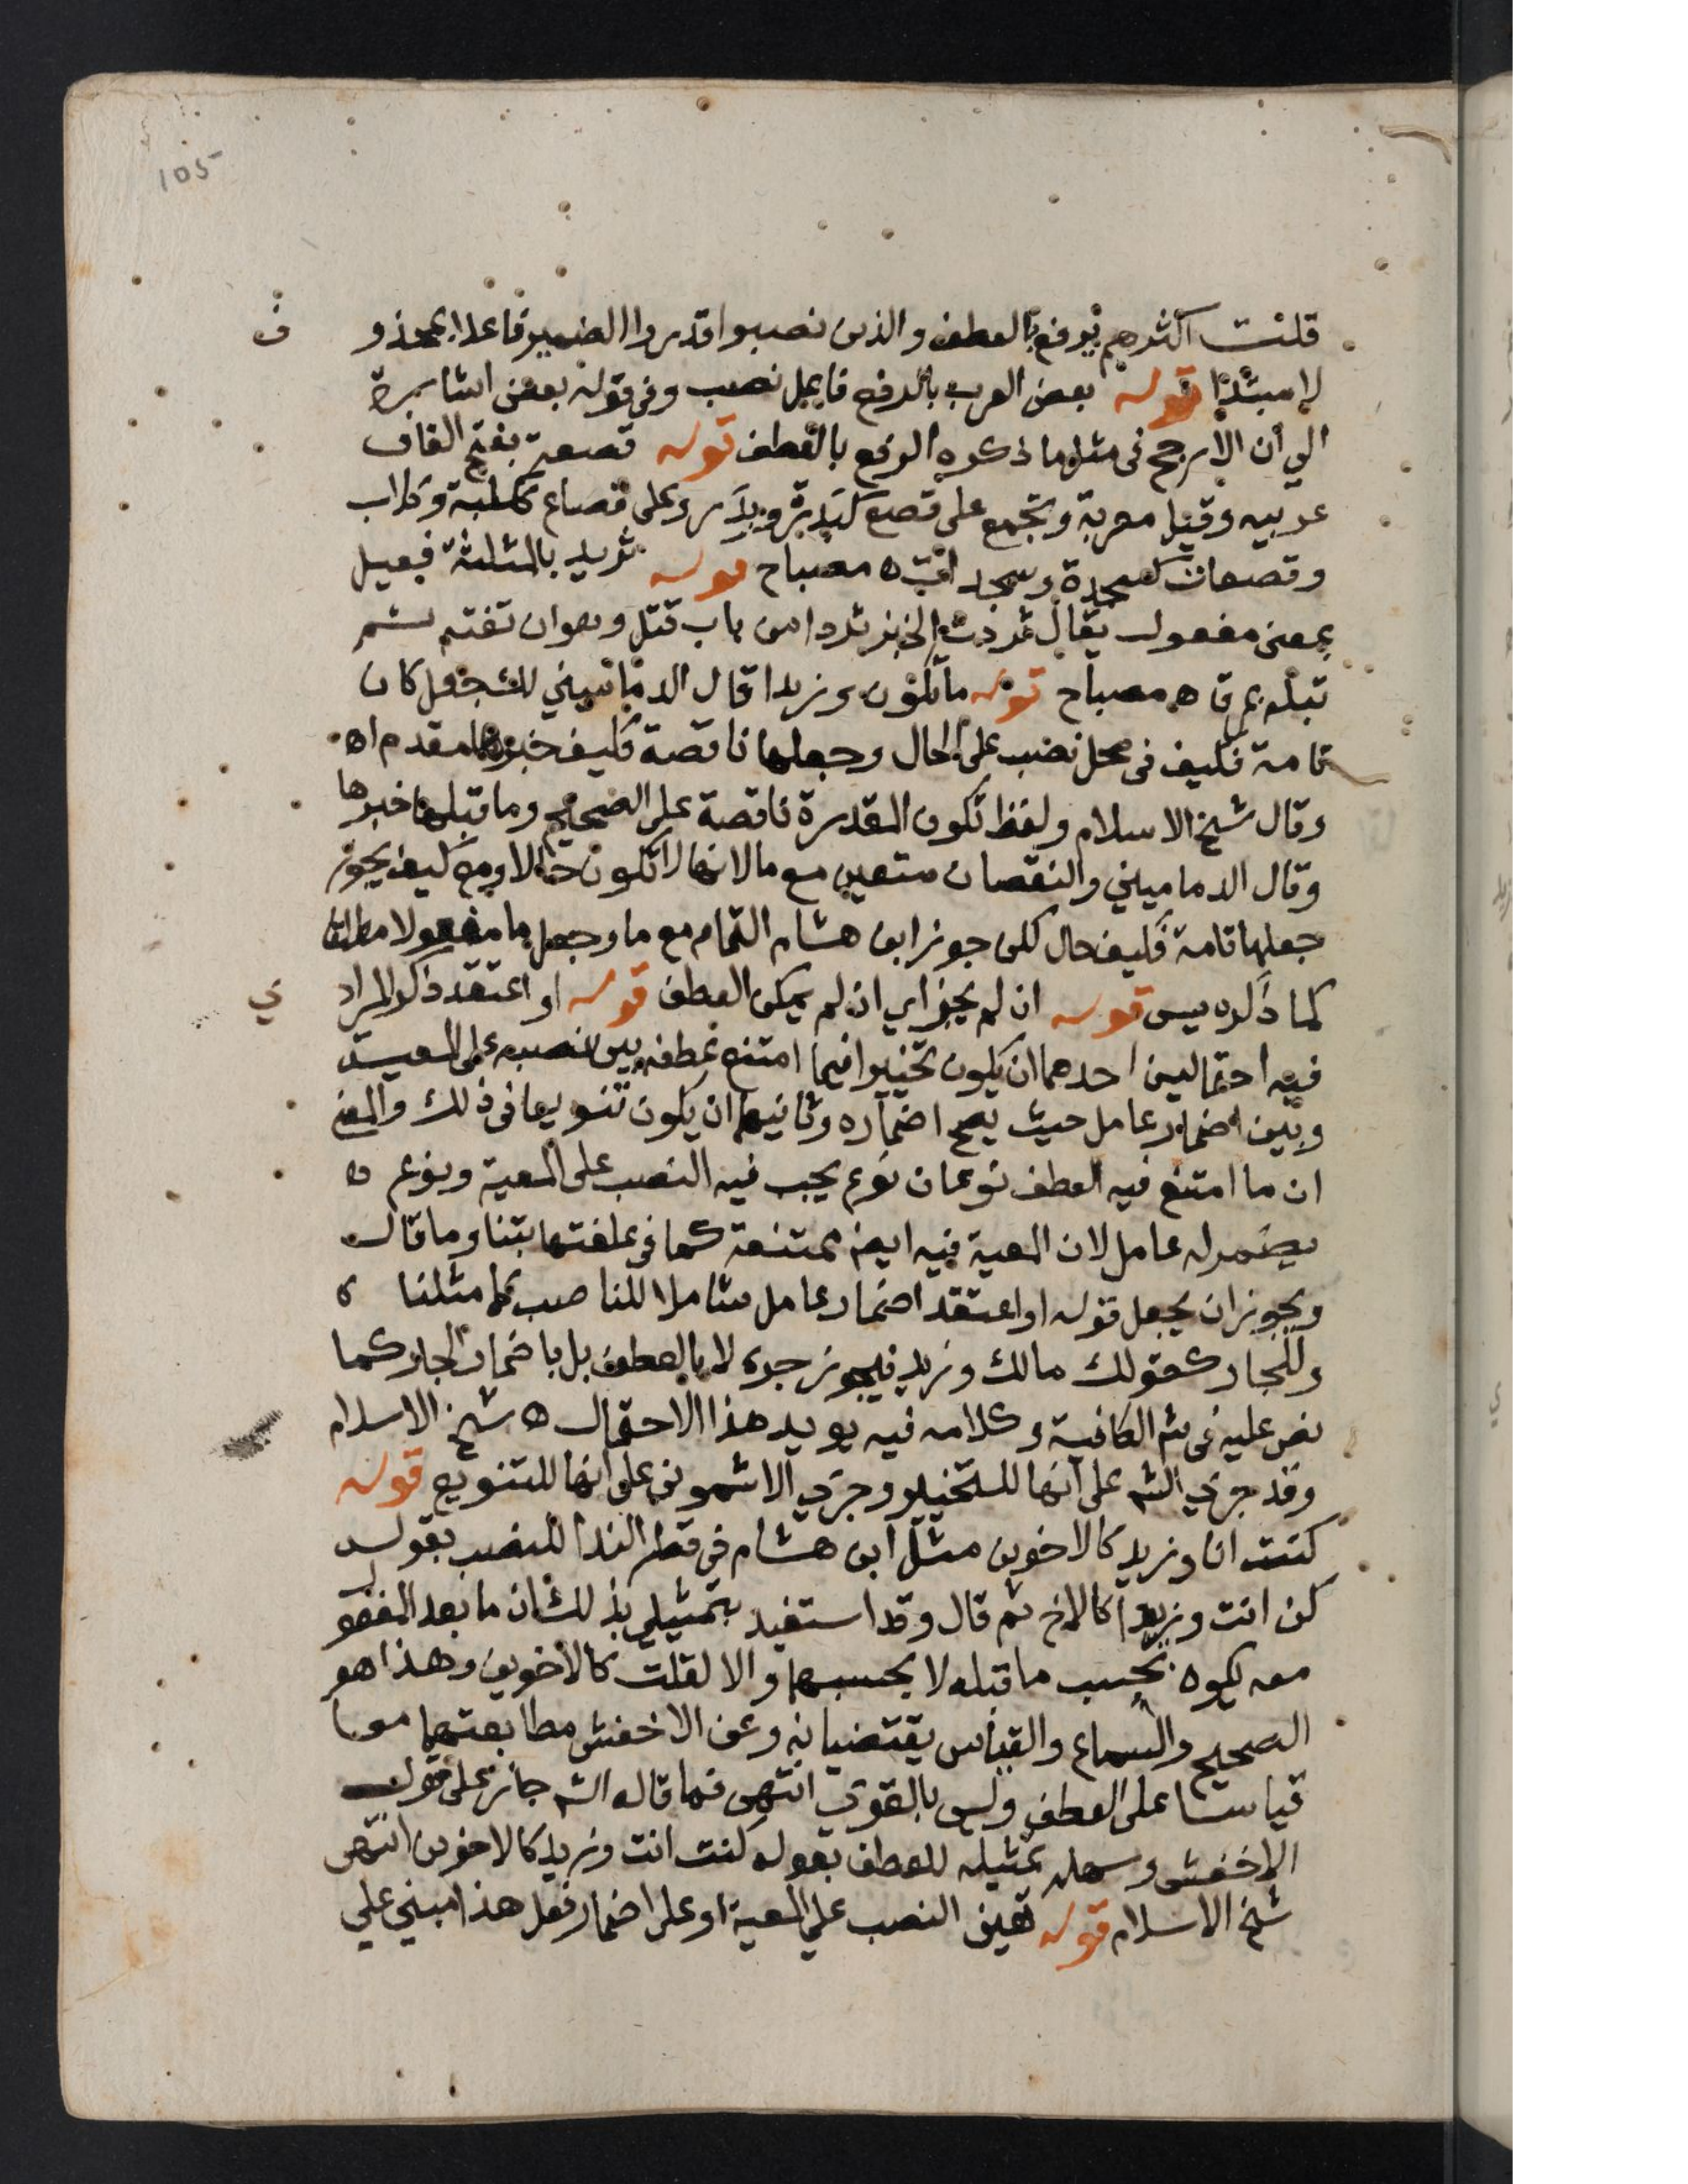 105
قلت اكثرهم يرفع بالعطف والذين نصبوا قدروا الضمير فاعلا بمحذو ف
لا مبتدا قوله بعض العرب بالرفع فاعل نصب وفي قوله بعض اشارة
الي ان الارجح في مثل ما ذكره الرفع بالعطف قوله قصعة بفتح القاف
عربيه وقيل معربة وتجمع على قصع كبدرة وبدر وعلى قصاع ككلبة وكلاب
وقصعات كسجدة وسجدات ه مصباح قوله ثريد بالمثلثة فعيل
بمعنى مفعول يقال ثردت الخبز ثردا من باب قتل وهو ان تفته ثم
تبله بمرق ه مصباح قوله ما تكون وزيدا قال الدماميني للشجعل كان
تامة فكيف في محل نصب على الحال وجعلها ناقصة فكيف خبرها مقدم اه
وقال شيخ الاسلام ولفظ تكون المقدرة ناقصة على الصحيح وما قبلها خبرها
وقال الدماميني والنقصان متعين مع ما لانها لا تكون حالا ومع كيف يجوز
جعلها تامة فكيف حال لكن جوز ابن هشام التمام مع ما وجعل ما مفعولا مطلقا
كما ذكره يس قوله ان لم يجز اي ان لم يمكن العطف قوله او اعتقد ذكر المراد ي
فيه احتمالين احدهما ان يكون تخييرا فيما امتنع عطفه بين نصبه على المعية
وبين اضمار عامل حيث يصح اضماره وثانيهما ان يكون تنويعا في ذلك والمعنى
ان ما امتنع فيه العطف نوعان نوع يجب فيه النصب على المعية ونوع ه
يضمر له عامل لان المعية فيه ايضا ممتنعة كما في علفتها تبنا وما قال
ويجوز ان يجعل قوله او اعتقد اضمار عامل شاملا للناصب كما مثلنا ه
وللجار كقولك مالك وزيد فيجوز جره لا بالعطف بل باضمار الجار كما
نص عليه في شم الكافية وكلامه فيه يويد هذا الاحتمال ه شيخ الاسلام
وقد جري الشم على انها للتخيير وجري الاشموني على انها للتنويع قوله
كنت انا وزيد كالاخوين مثل ابن هشام في قطر الندا للنصب بقوله
كن انت وزيدا كالاخ ثم قال وقد استفيد بتمثيلي بذلك ان ما بعد المفعول
معه يكون بحسب ما قبله لا بحسبهما والا لقلت كالاخوين وهذا هو
الصحيح والسماع والقياس يقتضيانه وعن الاخفش مطابقتهما معا
قياسا على العطف وليس بالقوي انتهى فما قاله الشم جائز على قول
الاخفش وسهله تمثيله للعطف بقوله كنت انت وزيد كالاخوين انتهى
شيخ الاسلام قوله تعين النصب علي المعية او على اضمار فعل هذا مبني علي